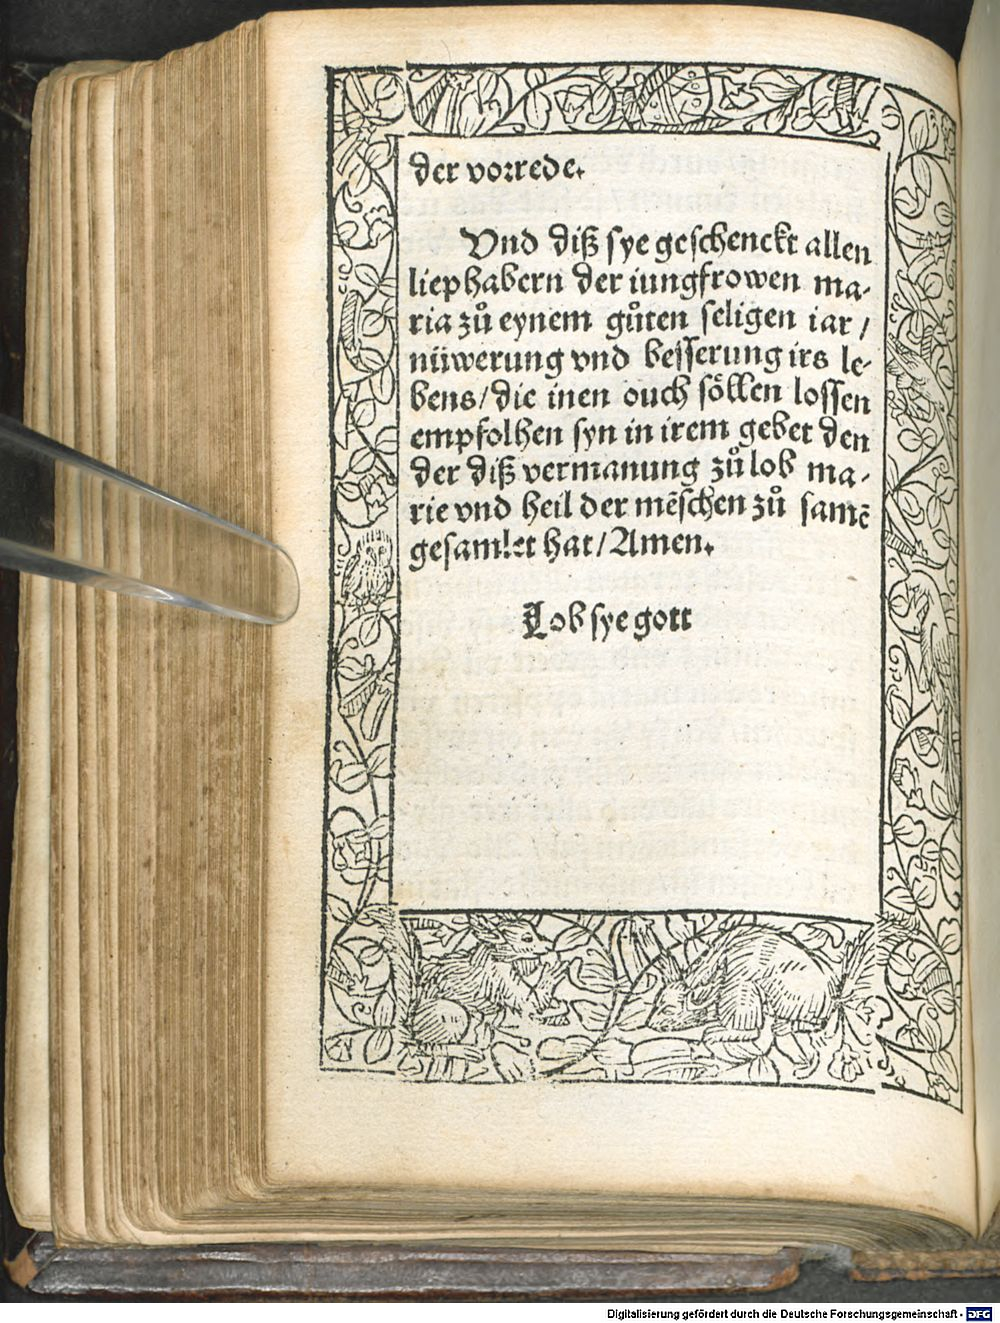 der vorrede.
Vnd diß sye geschenckt allen
liephabern der iungfrowen ma-
ria zů eynem gůten seligen iar /
nüwerung vnd besserung irs le-
bens / die inen ouch söllen lossen
empfolhen syn in irem gebet den
der diß vermanung zů lob ma-
rie vnd heil der mēschen zů samē
gesamlet hat / Amen.
Lob sye gott
Digitalisierung gefördert durch die Deutsche Forschungsgemeinschaft - DFG